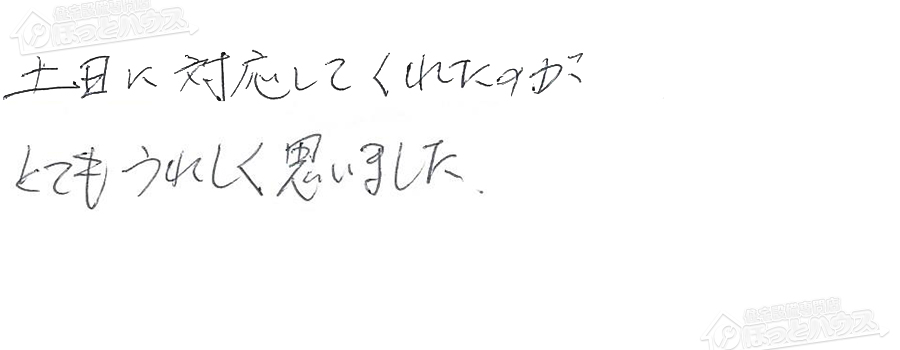 土日に対応してくれたのが
とてもうれしく思いました.
ほっとハウス
ほっとハウス